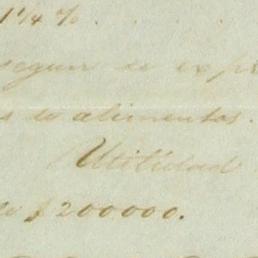 1¼ %
segun se exp
s de alimentos.
Utilidad
de $200000.